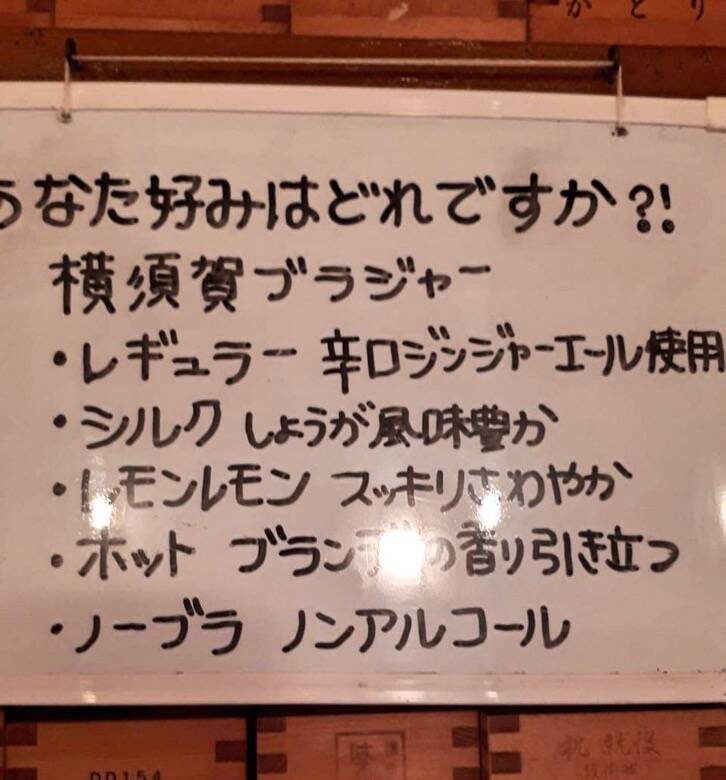 かとり
あなた好みはどれですか?!
横須賀ブラジャー
・レギュラー 辛口ジンジャーエール使用
・シルク しょうが風味豊か
・レモンレモン スッキリさわやか
・ホット ブランデーの香り引き立つ
・ノーブラ ノンアルコール
DD154
祝 就役